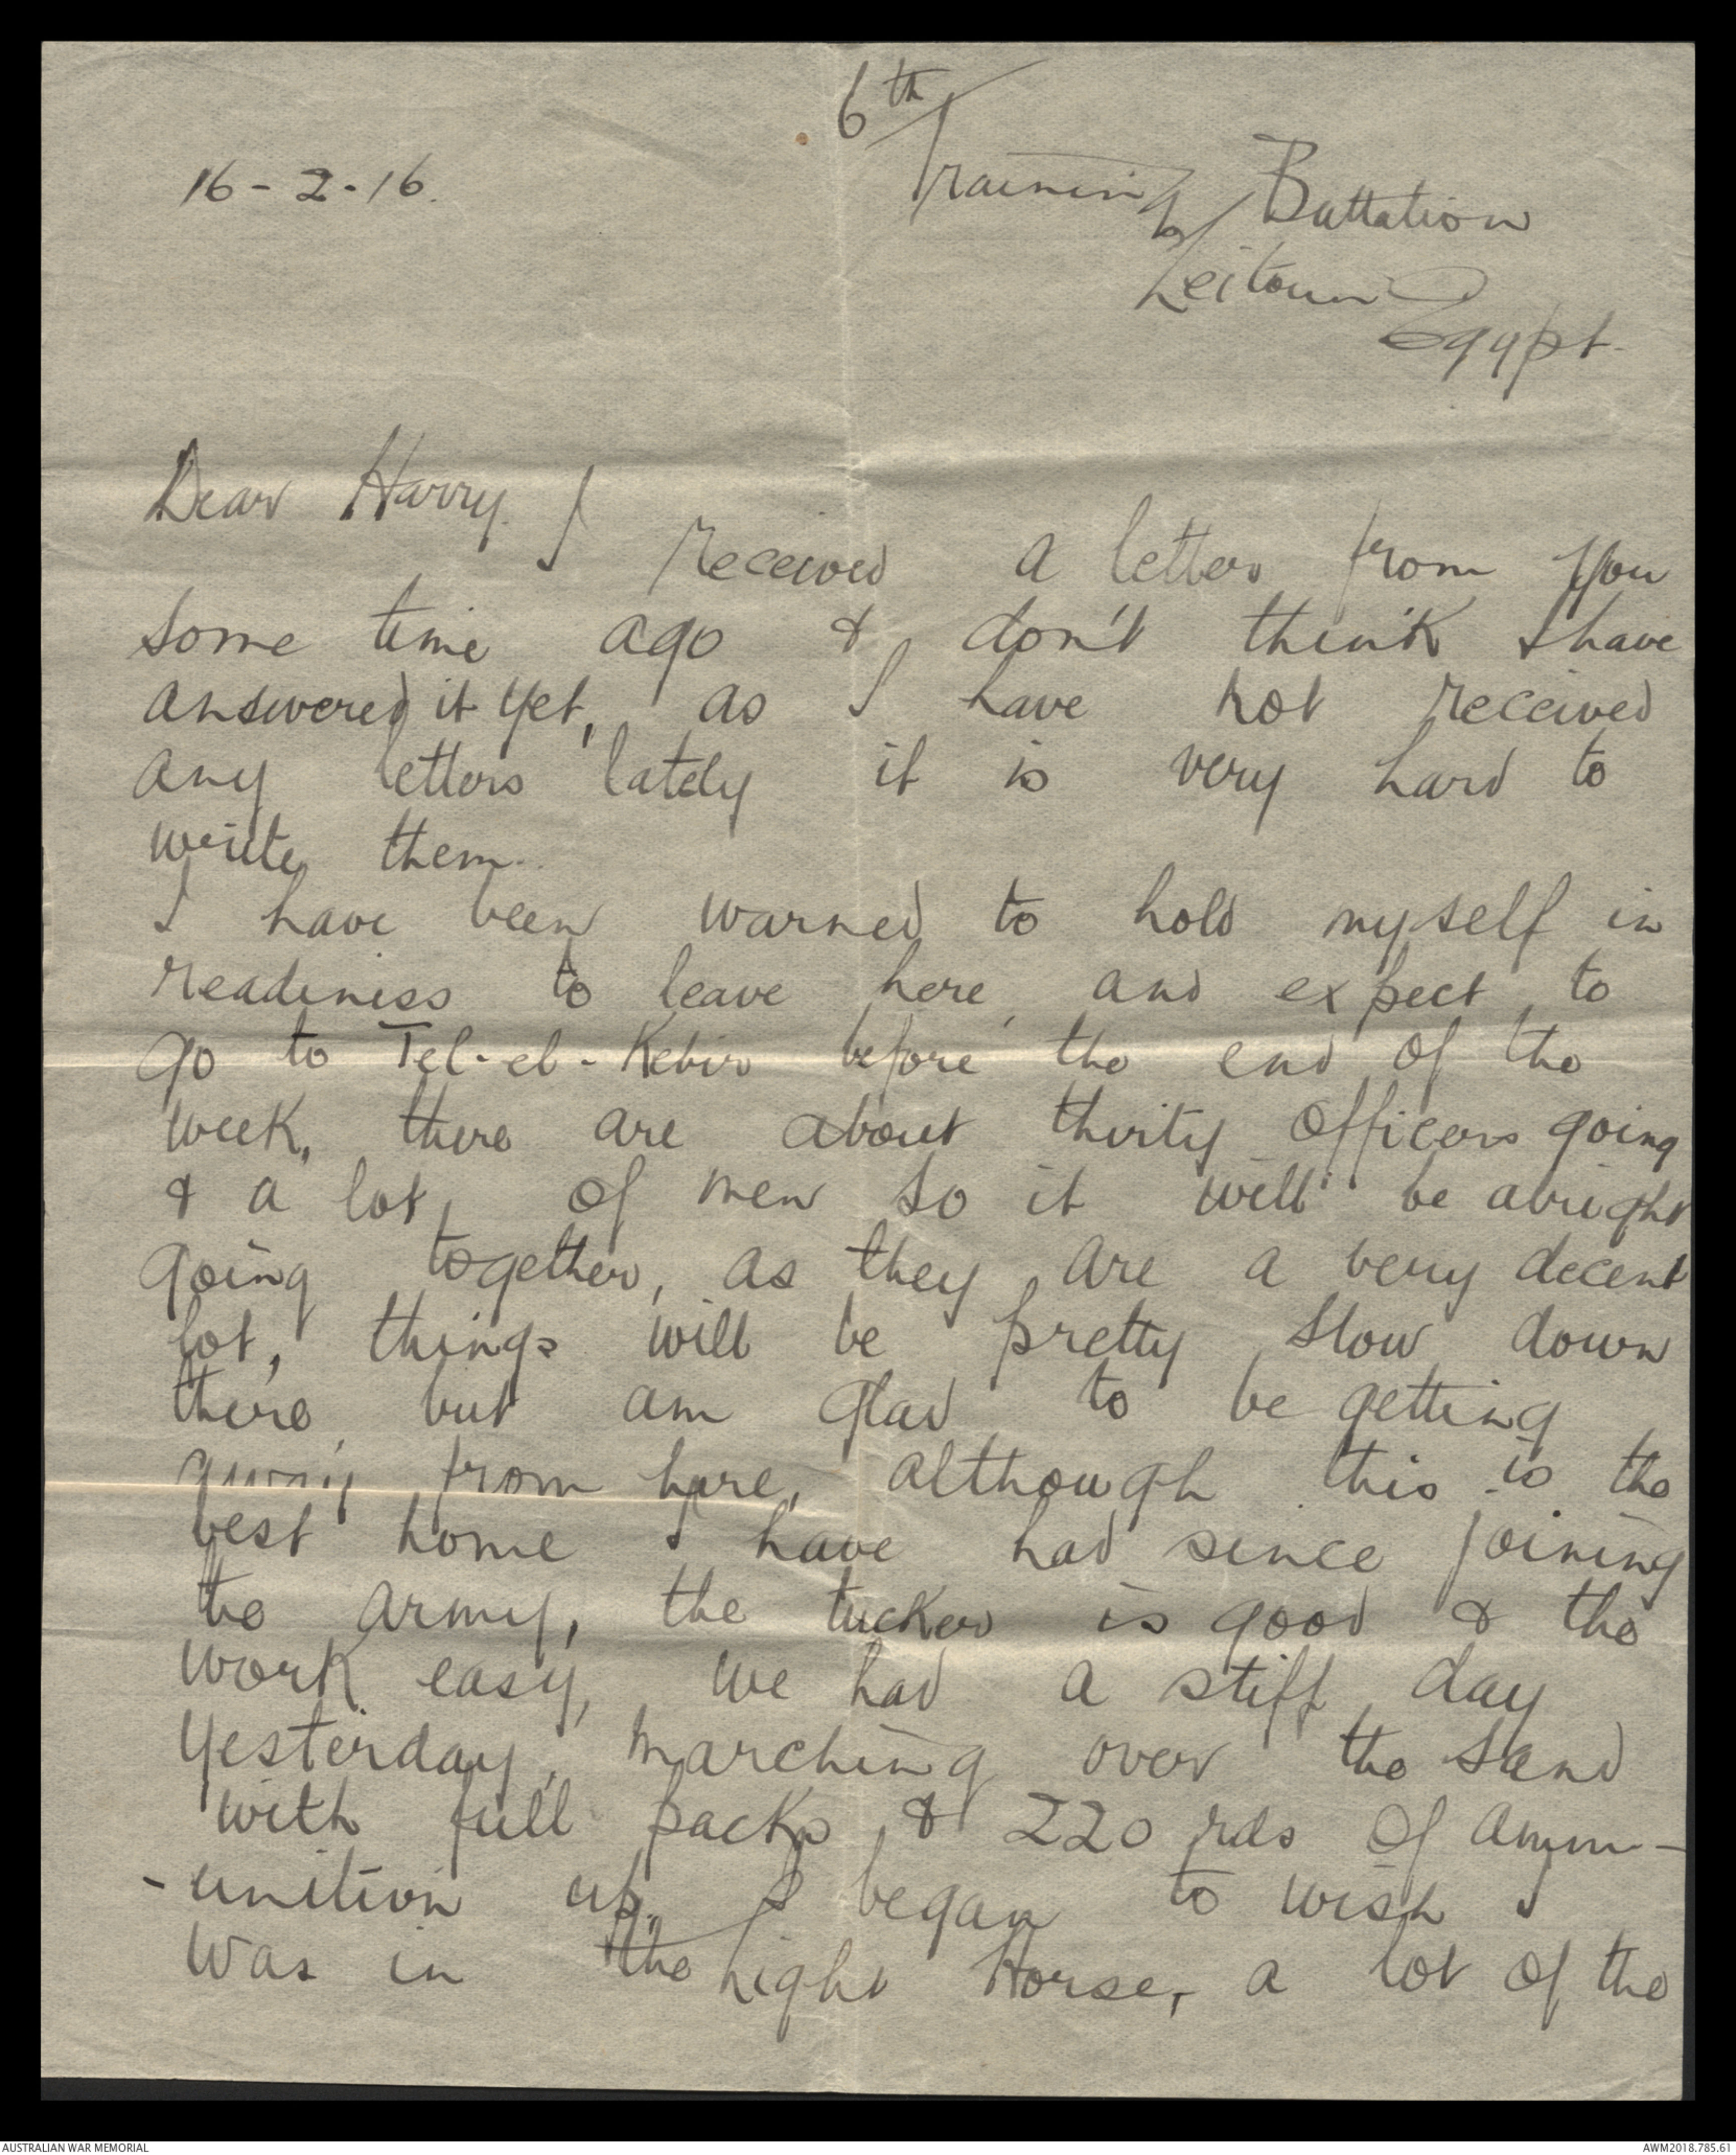 6th
16-2-16.
Training Battation
Zeitoun
Egypt.
Dear Harry. I
received a letter from you
some time ago & don't think I have
answered it yet, as I have not received
any letters lately it is very hard to
write them.
I have been warned to hold myself in
readiness to leave here, and expect to
go to Tel-el-Kebir before the end of the
week, there are about thirty officers going
& a lot of men so it will be alright
going together, as they are a very decent
lot, things will be pretty slow down
there, but am glad to be getting
away from here, although this is the
best home I have had since joining
the army, the tucker is good & the
work easy, we had a stiff day
yesterday, marching over the sand
with full packs & 220 rds of amm-
-unition up, I began to wish I
was in the Light Horse, a lot of the
AUSTRALIAN WAR MEMORIAL
AWM2018.785.61